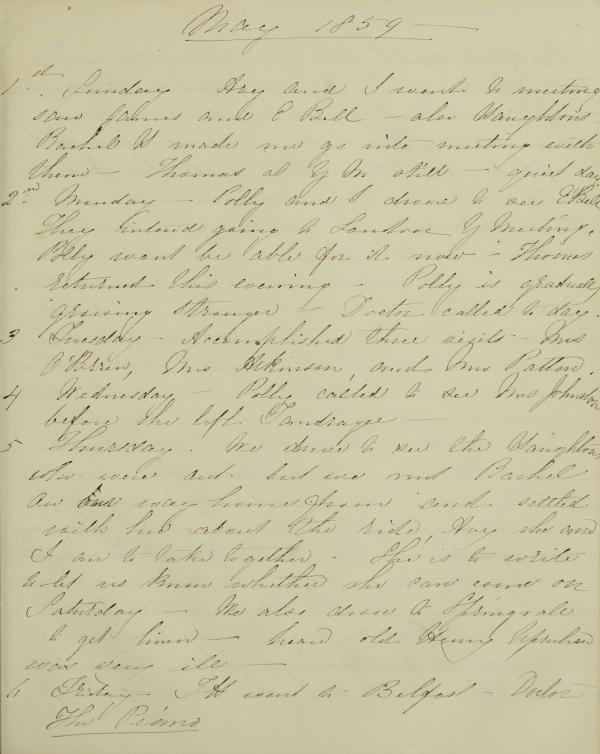 May 1859
1st. Sunday Avy and I went to meeting
saw James and E Bell – also Haughtons
Rachel H made me go into meeting with
them – Thomas at Y M still – quiet day
2nd Monday – Polly and I drove to see E Bell
They intend going to London Y Meeting.
Polly wont be able for it now – Thomas
returned this evening – Polly is gradually
growing stronger – Doctor called to day.
3 Tuesday – Accomplished three visits – Mrs
O'Brien, Mrs Atkinson, and Mrs Patton.
4 Wednesday – Polly called to see Mrs Johnston
before she left Tandragee –
5 Thursday. We drove to see the Haughtons
who were out – but we met Rachel
on our way home from and settled
with her about the ride, Avy she and
I are to take together – She is to write
to let us know whether she can come on
Saturday – We also drove to Springvale
to get linen – hear old Henry
was very ill –
6 Friday – TH went to Belfast – Doctor
The Piano